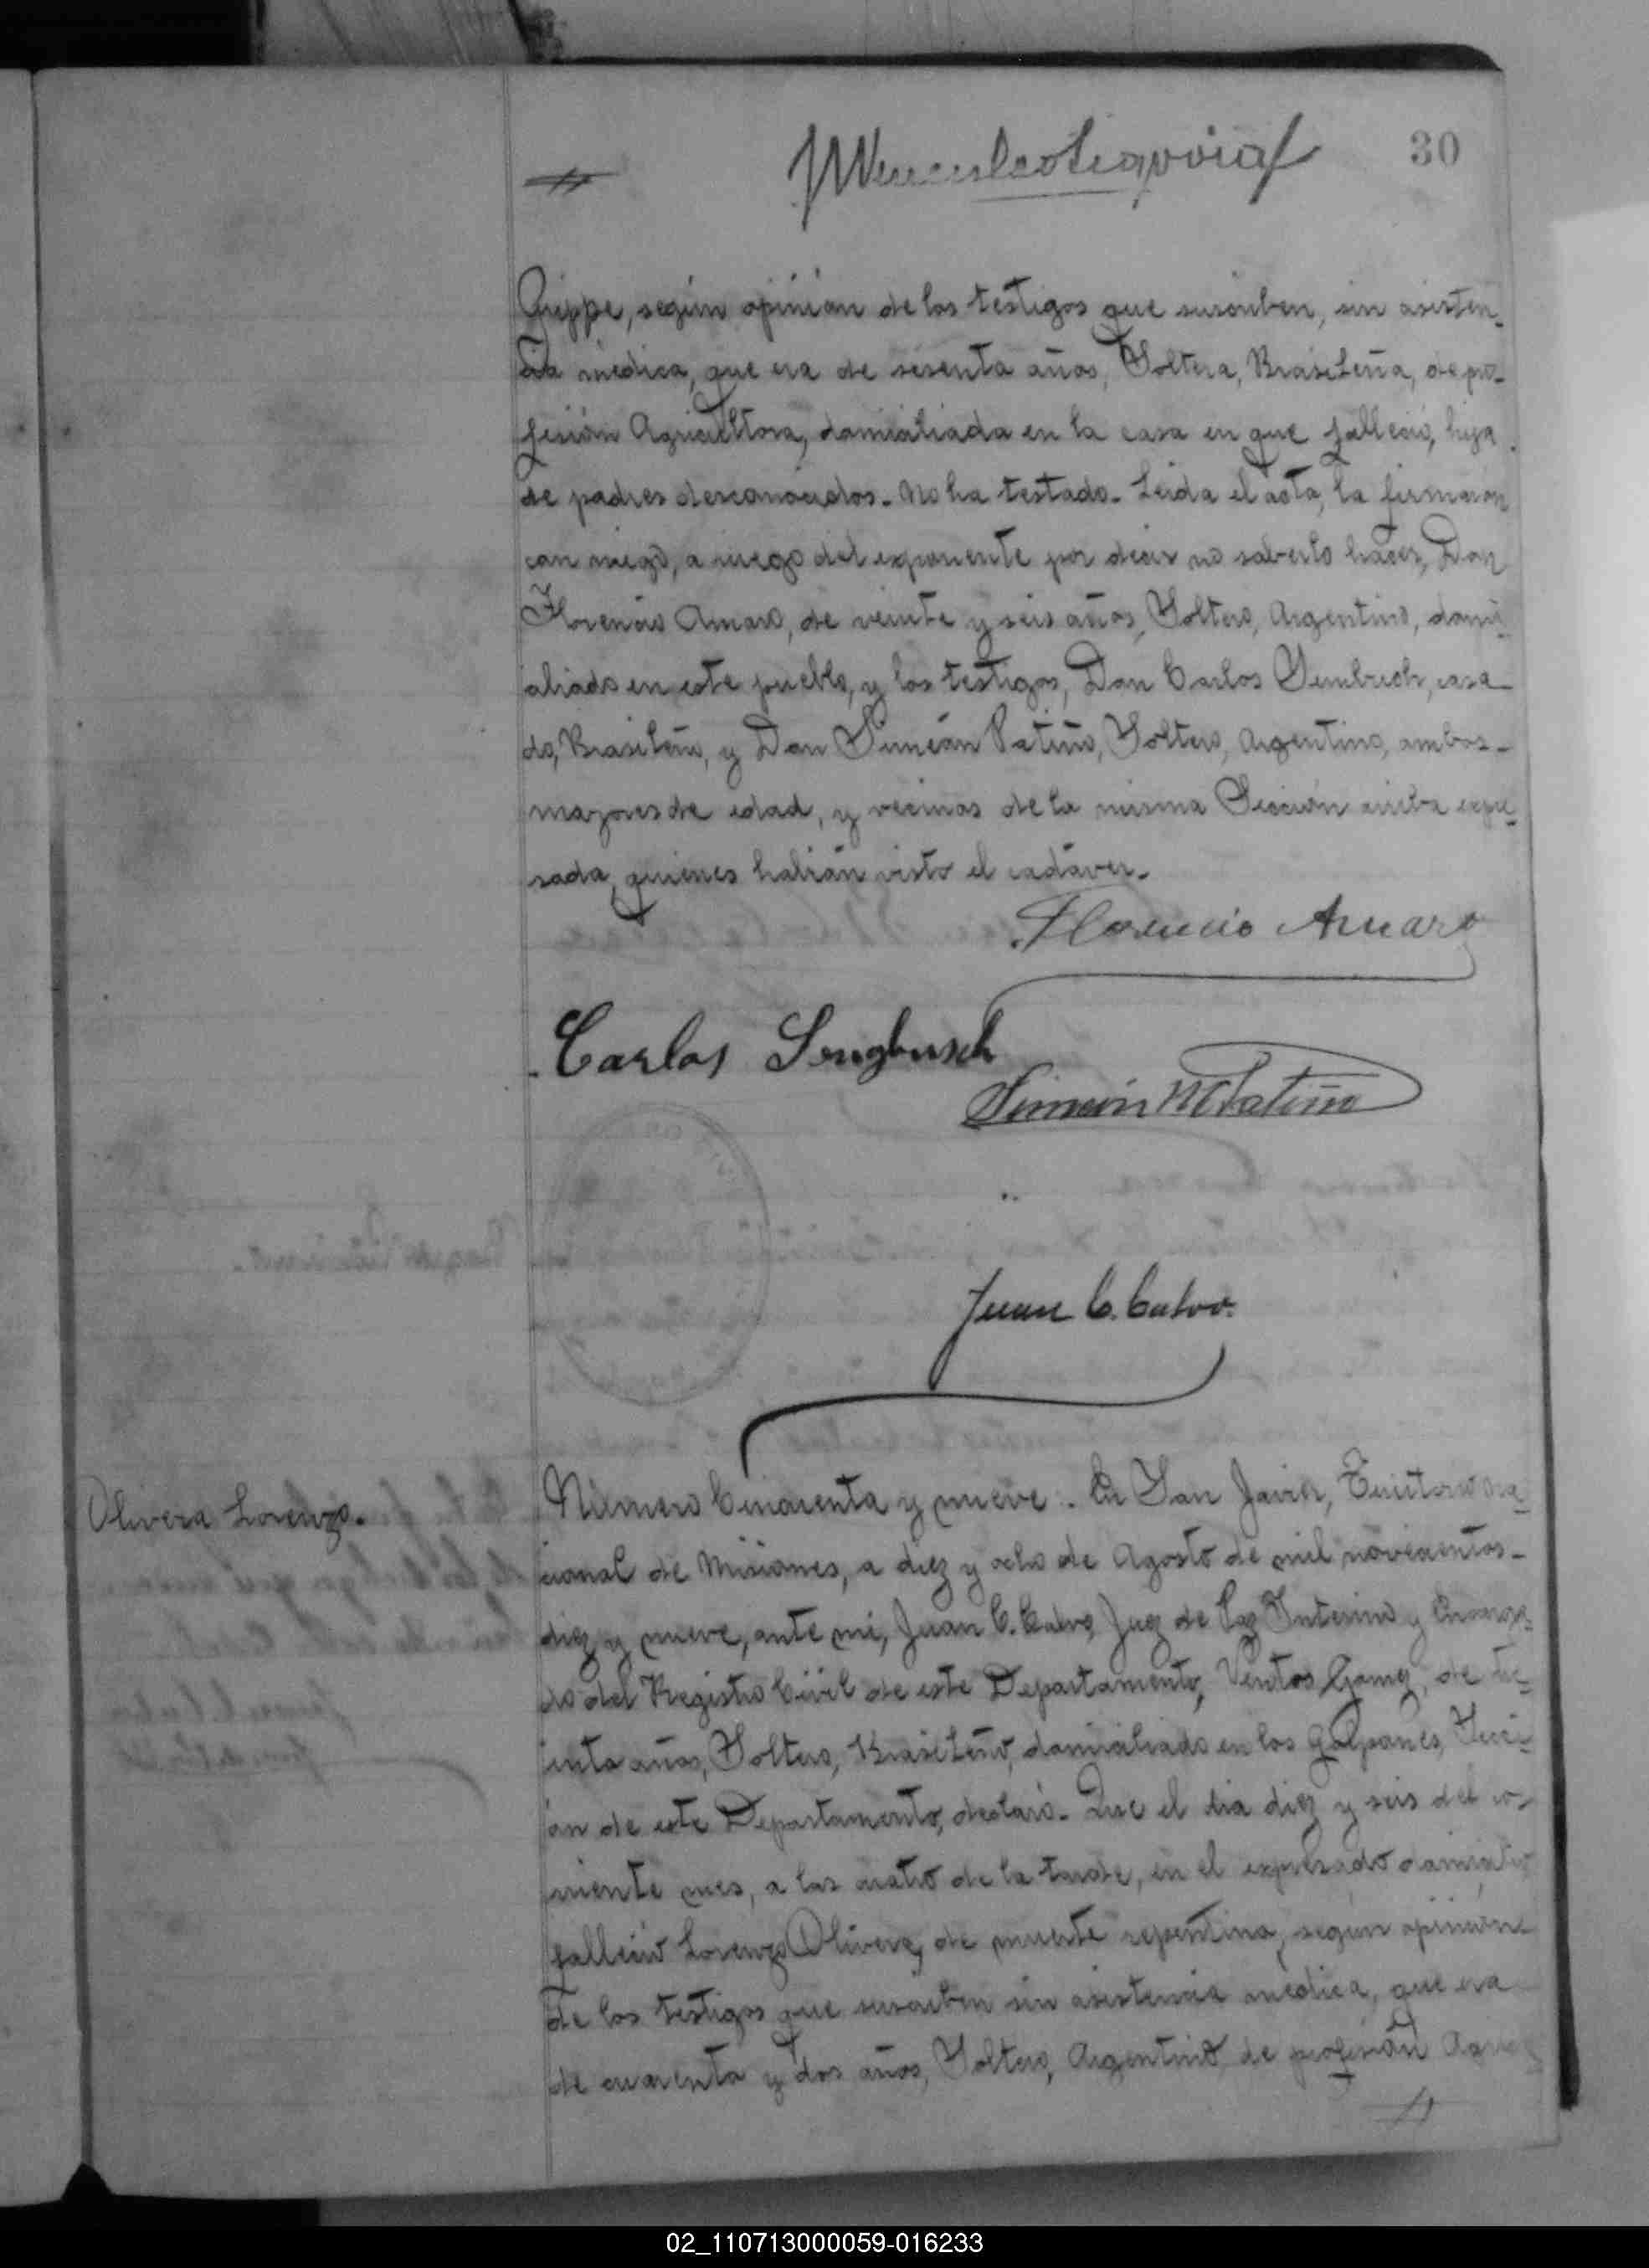 30
Grippe, según opinión de los testigos que suscriben, sin asisten-
cia médica, que era de sesenta años, Soltera, Brasileña, de pro-
fesión Agricultora, domiciliada en la casa en que falleció, hija
de padres desconocidos. No ha testado. Leida el acta, la firmarón
con migo, a ruego del exponente por decir no saberlo hacer, Don
Florencio Amaro, de veinte y seis años, Soltero, Argentino, domi-
ciliado en este pueblo, y los testigos, Don Carlos casa-
do, Brasileño, y Don Simeón Patiño, Soltero, Argentino, ambos-
mayores de edad, y vecinos de la misma Sección arriba expre-
sada, quienes habían visto el cadáver.
Florencio Amaro
Carlos Sengbusch
Simeón Patiño
Juan C. Calvo.
Olivera Lorenzo.
Número Cincuenta y nueve. En San Javier, Territorio Na-
cional de Misiones, a diez y ocho de Agosto de mil novecientos-
diez y nueve, ante mi, Juan C. Calvo, Juez de Paz Interino y Encarga-
do del Registro Civil de este Departamento, Gomez, de tre-
inta años, Soltero, Brasileño, domiciliado en los Galpones, Secci-
ón de este Departamento, declaró. Que el dia diez y seis del co-
rriente mes, a las cuatro de la tarde, en el expresado domicilio
falleció Lorenzo Olivera, de muerte repentina, según opinión
de los testigos que suscriben sin asistencia médica, que era
de cuarenta y dos años, Soltero, Argentino, de profesión
02_110713000059-016233